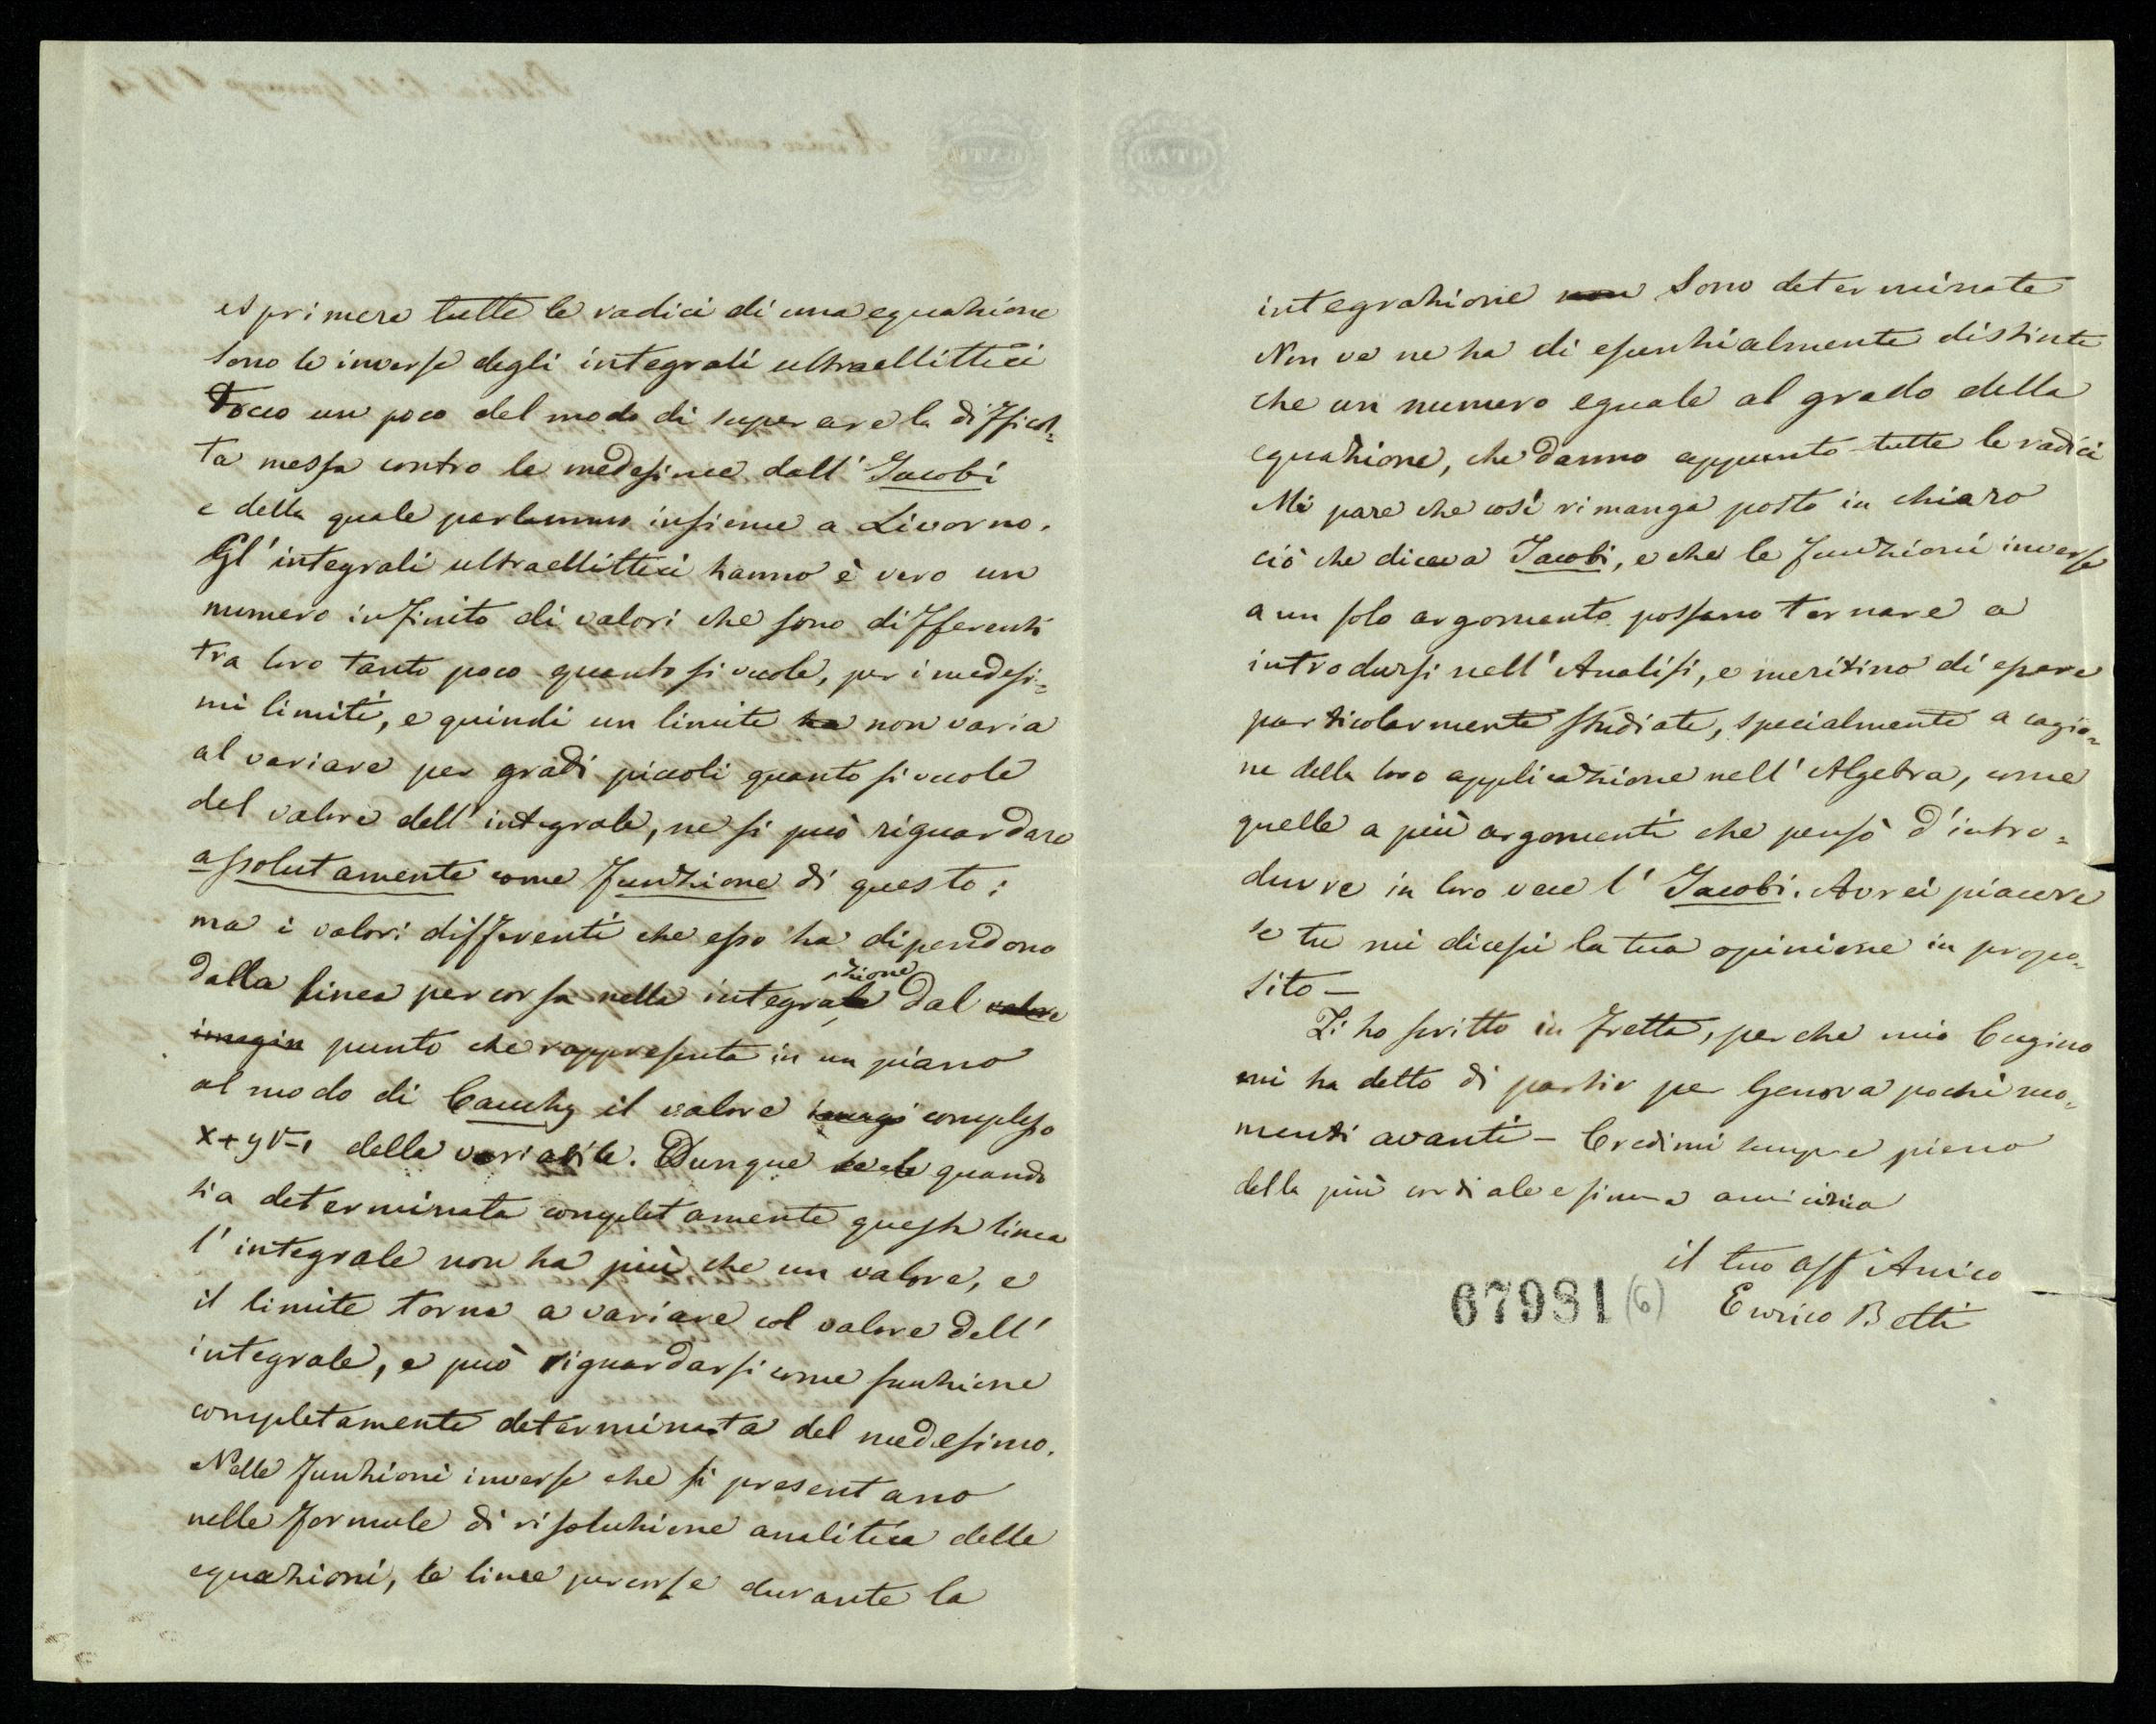 esprimere tutte le radici di una equazione
sono le inverse degli integrali ultraellittici
Tocco un poco del modo di superare la difficol=
ta messa contro le medesime dall' Jacobi
e della quale parlammo insieme a Livorno.
Gl' integrali ultraellittici hanno è vero un
numero infinito di valori che sono differenti
tra loro tanto poco quanto si vuole, per i medesi=
mi limiti, e quindi un limite ha non varia
al variare per gradi piccoli quanto si vuole
del valore dell' integrale, ne si può riguardare
assolutamente come funzione di questo:
ma i valori differenti che esso ha dipendono
dalla linea percorsa nella integrale zione dal valore
imagin punto che rappresenta in un piano
al modo di Cauchy il valore imagi complesso
x+y√-1 della variabile. Dunque quando
sia determinata completamente questa linea
l' integrale non ha più che un valore, e
il limite torna a variare col valore dell'
integrale, e può riguardarsi come funzione
completamente determinata del medesimo.
Nelle funzioni inverse che si presentano
nelle formule di risoluzione analitica delle
equazioni, le linee percorse durante la
integrazione non sono determinate
Non ve ne ha di essenzialmente distinte
che un numero eguale al grado della
equazione, che danno appunto tutte le radici
Mi pare che così rimanga posto in chiaro
ciò che diceva Jacobi, e che le funzioni inverse
a un solo argomento possano tornare a
introdursi nell' Analisi, e meritino di essere
particolarmente studiate, specialmente a cagio=
ne della loro applicazione nell' Algebra, come
quelle a più argomenti che pensò d' intro=
durre in loro vece l' Jacobi. Avrei piacere
se tu mi dicessi la tua opinione in propo=
sito –
Ti ho scritto in fretta, perche mio Cugino
mi ha detto di partir per Genova pochi mo=
menti avanti – Credimi sempre pieno
della più cordiale e sincera amicizia
il tuo aff Amico
67981 (6) Enrico Betti
BATH